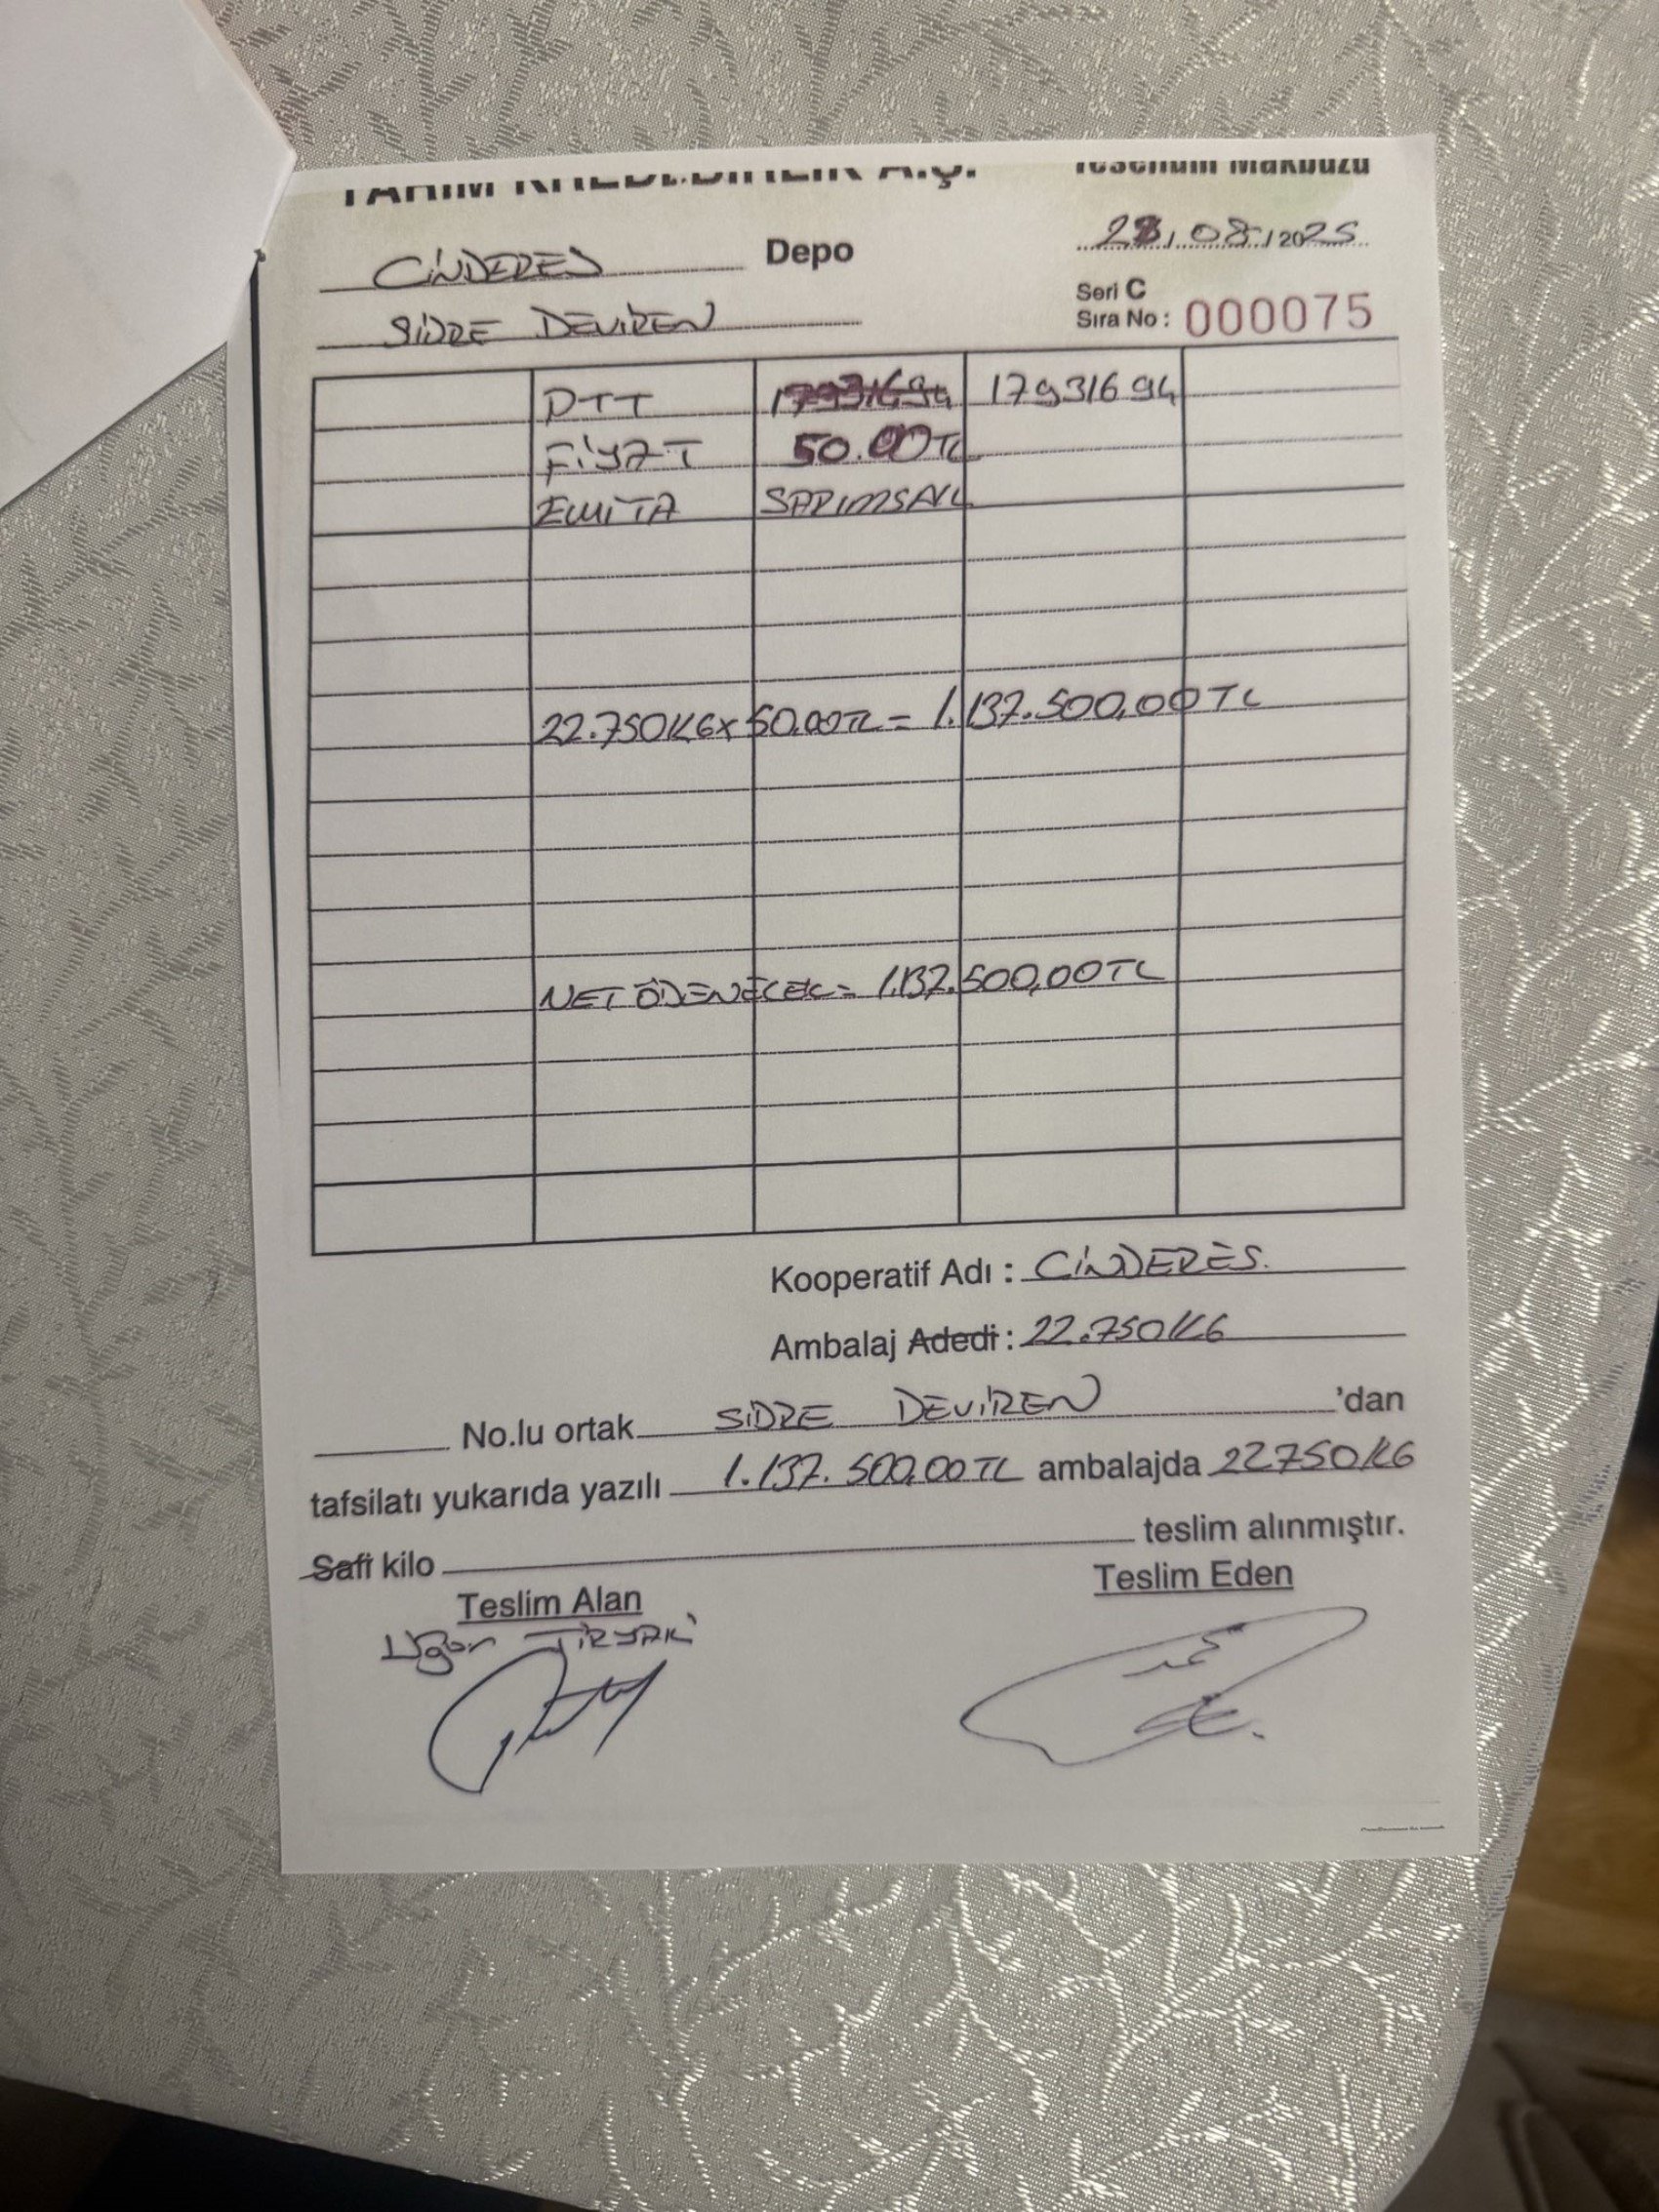 TARIM KREDİ BİRLİK A.Ş. Tesellüm Makbuzu
CİNDERES Depo 28/08/2025
Seri C
SİDRE DEVİREN Sıra No: 000075
PTT 17931694 17931694
FİYAT 50.00TL
EMİTA SARIMSAK
22.750KG x 50.00TL = 1.137.500,00TL
NET ÖDENECEK = 1.137.500,00TL
Kooperatif Adı : CİNDERES.
Ambalaj Adedi : 22.750KG
No.lu ortak SİDRE DEVİREN 'dan
tafsilatı yukarıda yazılı 1.137.500,00TL ambalajda 22750KG
Safi kilo teslim alınmıştır.
Teslim Alan Teslim Eden
Uğur TİRYAKİ